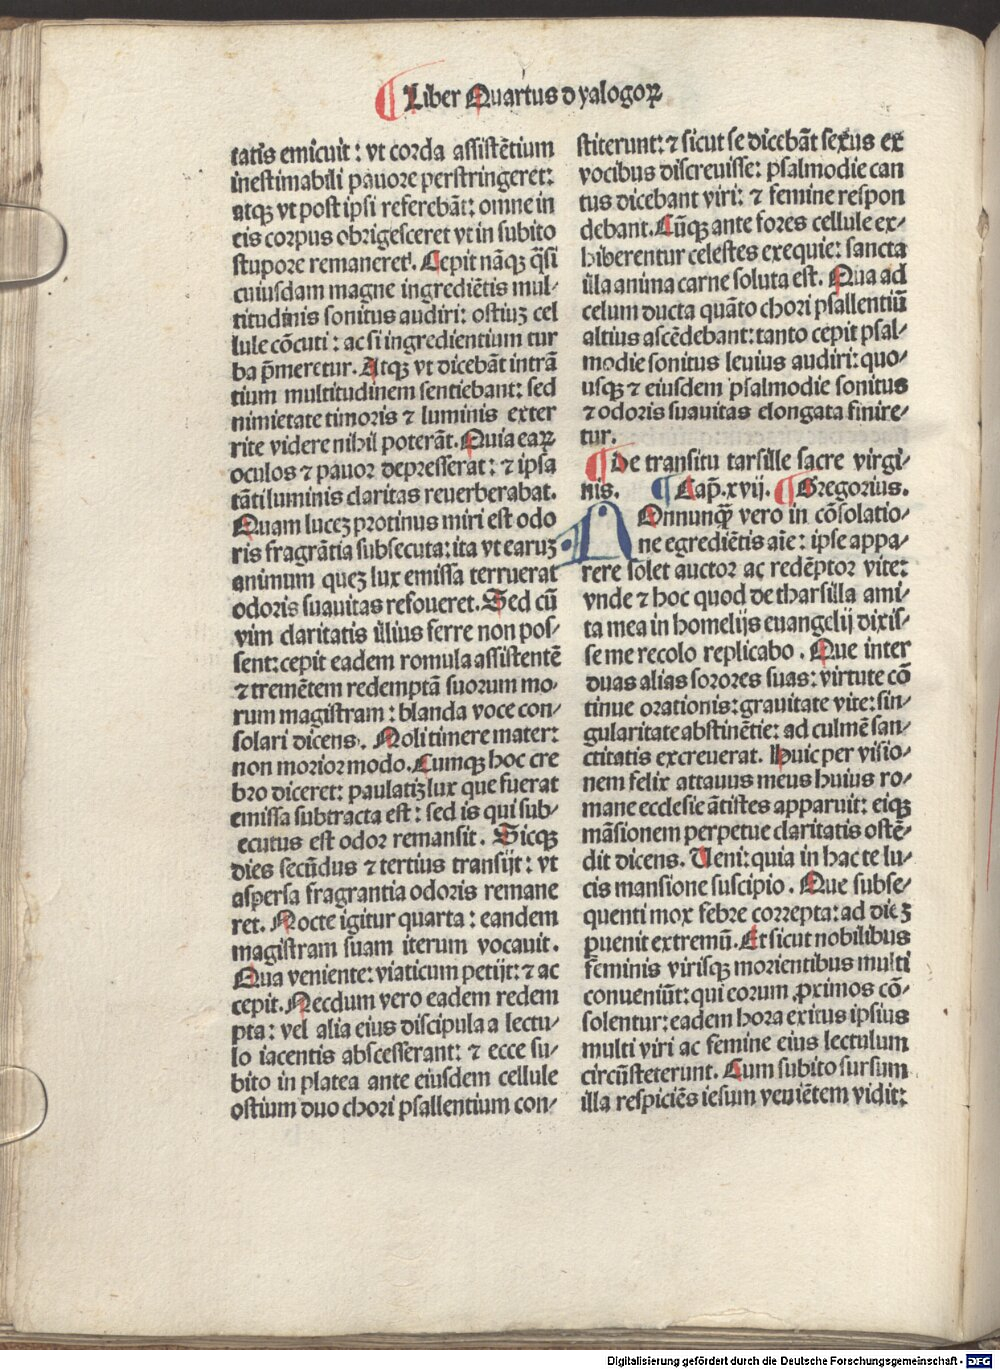 ¶ Liber Quartus dyalogoꝝ
tatis emicuit: vt corda assistētium
inestimabili pauore perstringeret:
atqꝫ vt post ipsi referebāt: omne in
eis corpus obrigesceret vt in subito
stupore remaneret. Cepit nāqꝫ q̄si
cuiusdam magne ingrediētis mul-
titudinis sonitus audiri: ostiuꝫ cel
lule cōcuti: ac si ingredientium tur
ba p̄meretur. Atqꝫ vt dicebāt intrā
tium multitudinem sentiebant: sed
nimietate timoris ⁊ luminis exter
rite videre nihil poterāt. Quia eaꝝ
oculos ⁊ pauor depresserat: ⁊ ipsa
tāti luminis claritas reuerberabat.
Quam luceꝫ protinus miri est odo
ris fragrātia subsecuta: ita vt earuꝫ
animum queꝫ lux emissa terruerat
odoris suauitas refoueret. Sed cū
vim claritatis illius ferre non pos-
sent: cepit eadem romula assistentē
⁊ tremētem redemptā suorum mo-
rum magistram: blanda voce con-
solari dicens. Noli timere mater:
non morior modo. Cumqꝫ hoc cre
bro diceret: paulatiꝫ lux que fuerat
emissa subtracta est: sed is qui sub-
ecutus est odor remansit. Sicqꝫ
dies secūdus ⁊ tertius transijt: vt
aspersa fragrantia odoris remane
ret. Nocte igitur quarta: eandem
magistram suam iterum vocauit.
Qua veniente: viaticum petijt: ⁊ ac
cepit. Necdum vero eadem redem
pta: vel alia eius discipula a lectu-
lo iacentis abscesserant: ⁊ ecce su-
bito in platea ante eiusdem cellule
ostium duo chori psallentium con-
stiterunt: ⁊ sicut se dicebāt sexus ex
vocibus discreuisse: psalmodie can
tus dicebant viri: ⁊ femine respon
debant. Cūqꝫ ante fores cellule ex-
hiberentur celestes exequie: sancta
illa anima carne soluta est. Qua ad
celum ducta quāto chori psallentiū
altius ascēdebant: tanto cepit psal-
modie sonitus leuius audiri: quo-
usqꝫ ⁊ eiusdem psalmodie sonitus
⁊ odoris suauitas elongata finire-
tur.
¶ De transitu tarsille sacre virgi-
nis. ¶ Cap̄. xvij. ¶ Gregorius.
NOnnunqꝫ̄ vero in cōsolatio-
ne egrediētis aīe: ipse appa-
rere solet auctor ac redēptor vite:
vnde ⁊ hoc quod de tharsilla ami-
ta mea in homelijs euangelij dixis-
se me recolo replicabo. Que inter
duas alias sorores suas: virtute cō
tinue orationis: grauitate vite: sin-
gularitate abstinētie: ad culmē san-
ctitatis excreuerat. Huic per visio-
nem felix attauus meus huius ro-
mane ecclesie ātistes apparuit: eiqꝫ
māsionem perpetue claritatis ostē-
dit dicens. Ueni: quia in hac te lu-
cis mansione suscipio. Que subse-
quenti mox febre correpta: ad dieꝫ
ꝑuenit extremū. Et sicut nobilibus
feminis virisqꝫ morientibus multi
conueniūt: qui eorum ꝓximos cō-
solentur: eadem hora exitus ipsius
multi viri ac femine eius lectulum
circūsteterunt. Cum subito sursum
illa respiciēs iesum veniētem vidit:
Digitalisierung gefördert durch die Deutsche Forschungsgemeinschaft - DFG